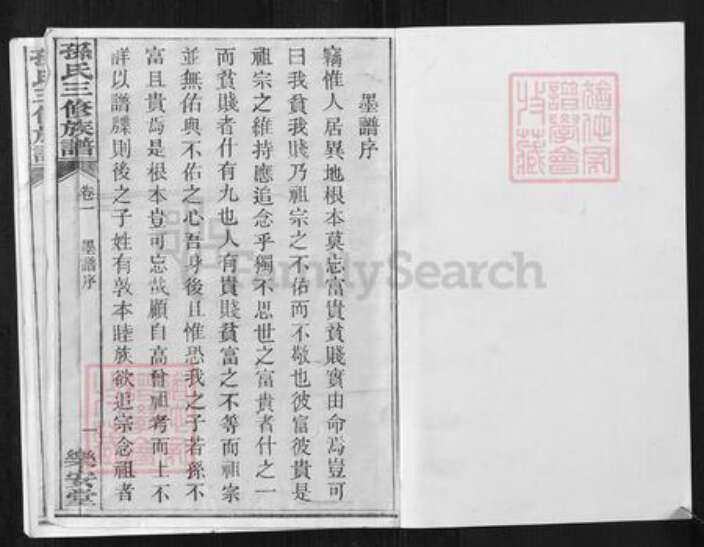 墨譜序
竊惟人居異地根本莫忘富貴貧賤實由命焉豈可
曰我貧我賤乃祖宗之不佑而不敬也彼富彼貴是
祖宗之維持應追念乎獨不思世之富貴者什之一
而貧賤者什有九也人有貴賤貧富之不等而祖宗
並無佑與不佑之心吾身後且惟恐我之子若孫不
富且貴焉是根本豈可忘哉顧自高曾祖考而上不
詳以譜牒則後之子姓有敦本睦族欲追宗念祖者
孫氏三修族譜
卷一
墨譜序
一
樂安堂
孫氏三修族譜
FamilySearch